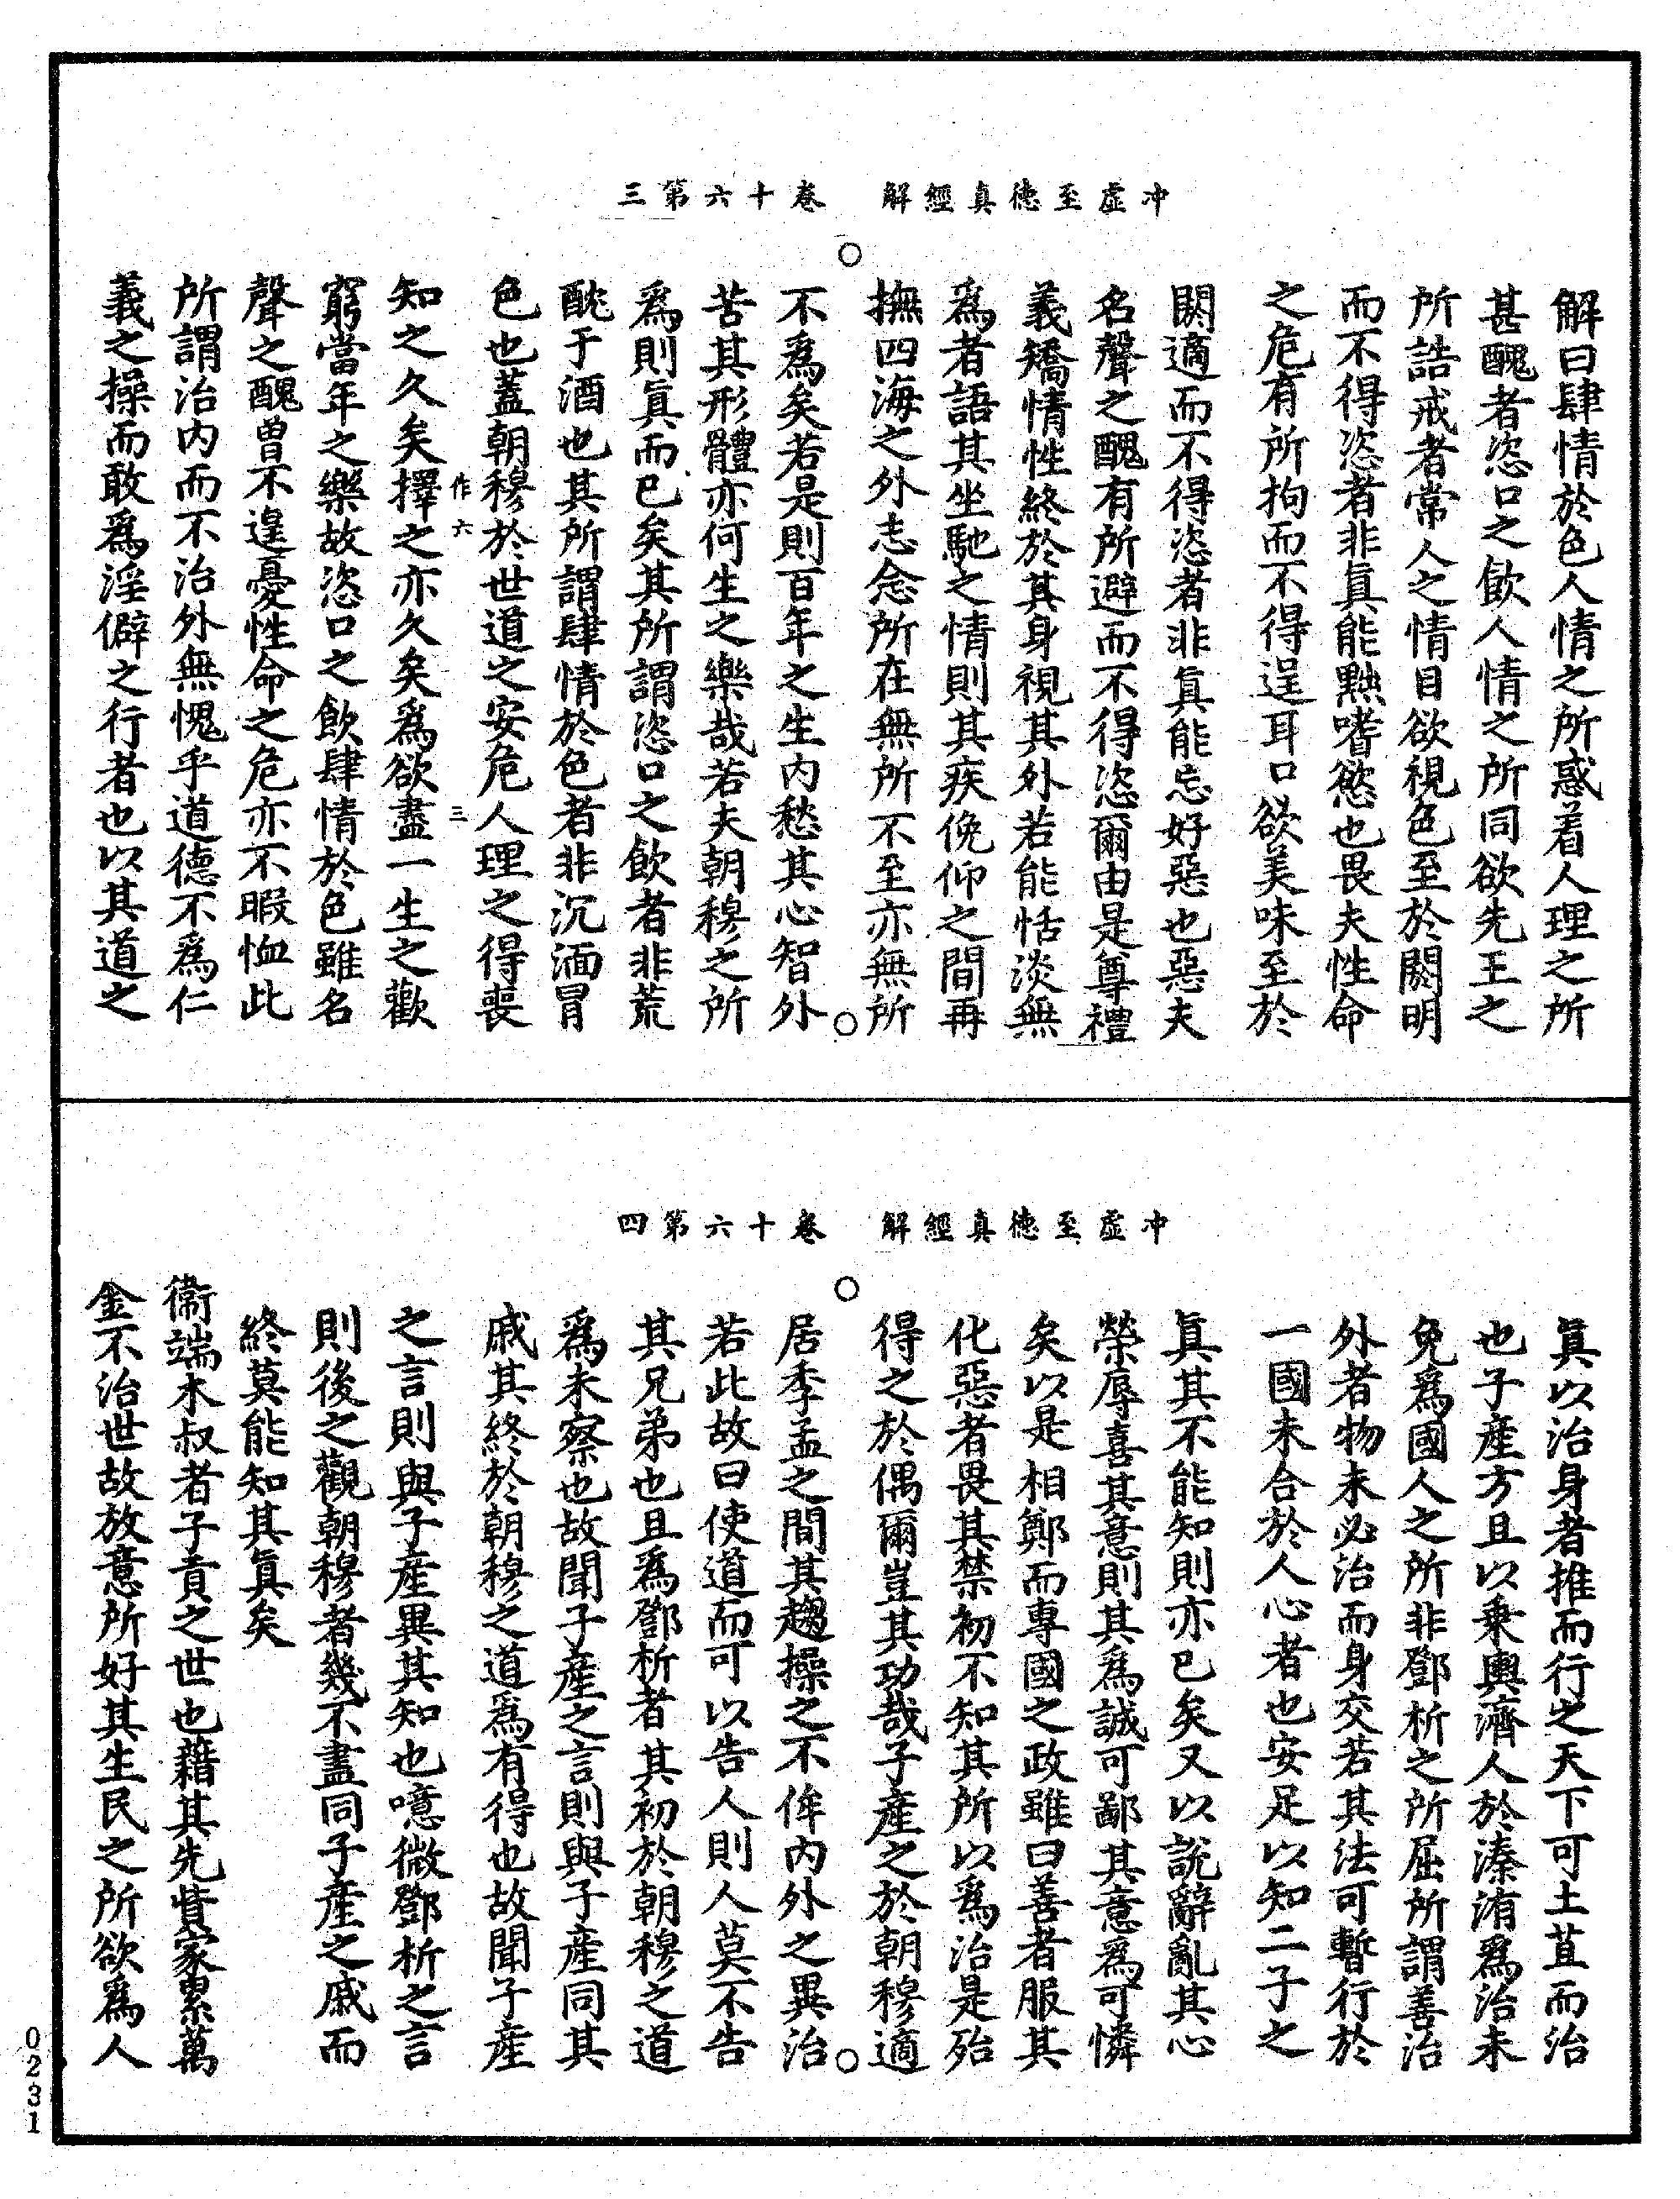 冲虛至德真經解　卷十六第三
解曰肆情於色人情之所惑着人理之所
甚醜者恣口之飲人情之所同欲先王之
所誥戒者常人之情目欲視色至於閼明
而不得恣者非眞能黜嗜慾也畏夫性命
之危有所拘而不得逞耳口欲美味至於
閼適而不得恣者非眞能忘好惡也惡夫
名聲之醜有所避而不得恣爾由是尊禮
義矯情性終於其身視其外若能恬淡無
爲者語其坐馳之情則其疾俛仰之間再
撫四海之外志念所在無所不至亦無所
不爲矣若是則百年之生內愁其心智外
苦其形體亦何生之樂哉若夫朝穆之所
爲則眞而已矣其所謂恣口之飲者非荒
酖于酒也其所謂肆情於色者非沉湎冒
色也蓋朝穆於世道之安危人理之得喪
作六　三
知之久矣擇之亦久矣爲欲盡一生之歡
窮當年之樂故恣口之飲肆情於色雖名
聲之醜曾不遑憂性命之危亦不暇恤此
所謂治內而不治外無愧乎道德不爲仁
義之操而敢爲淫僻之行者也以其道之
冲虛至德真經解　卷十六第四
眞以治身者推而行之天下可土苴而治
也子產方且以乗輿濟人於溱洧爲治未
免爲國人之所非鄧析之所屈所謂善治
外者物未必治而身交若其法可暫行於
一國未合於人心者也安足以知二子之
眞其不能知則亦已矣又以說辭亂其心
榮辱喜其意則其爲誠可鄙其意爲可憐
矣以是相鄭而專國之政雖曰善者服其
化惡者畏其禁初不知其所以爲治是殆
得之於偶爾豈其功哉子產之於朝穆適
居季孟之間其趨操之不侔內外之異治
若此故曰使道而可以告人則人莫不告
其兄弟也且爲鄧析者其初於朝穆之道
爲未察也故聞子產之言則與子產同其
戚其終於朝穆之道爲有得也故聞子產
之言則與子產異其知也噫微鄧析之言
則後之觀朝穆者幾不盡同子產之戚而
終莫能知其眞矣
衞端木叔者子貢之世也藉其先貲家累萬
金不治世故放意所好其生民之所欲爲人
0231